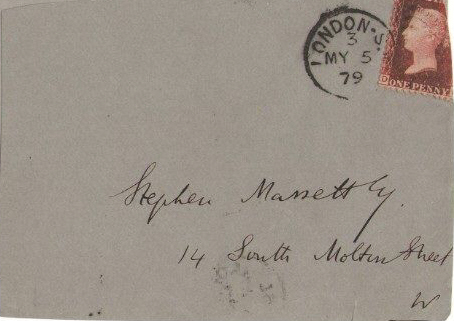 LONDON-S.
3
MY 5
79
ONE PENNY
Stephen Massett Esq.
14 South Molton Street
W